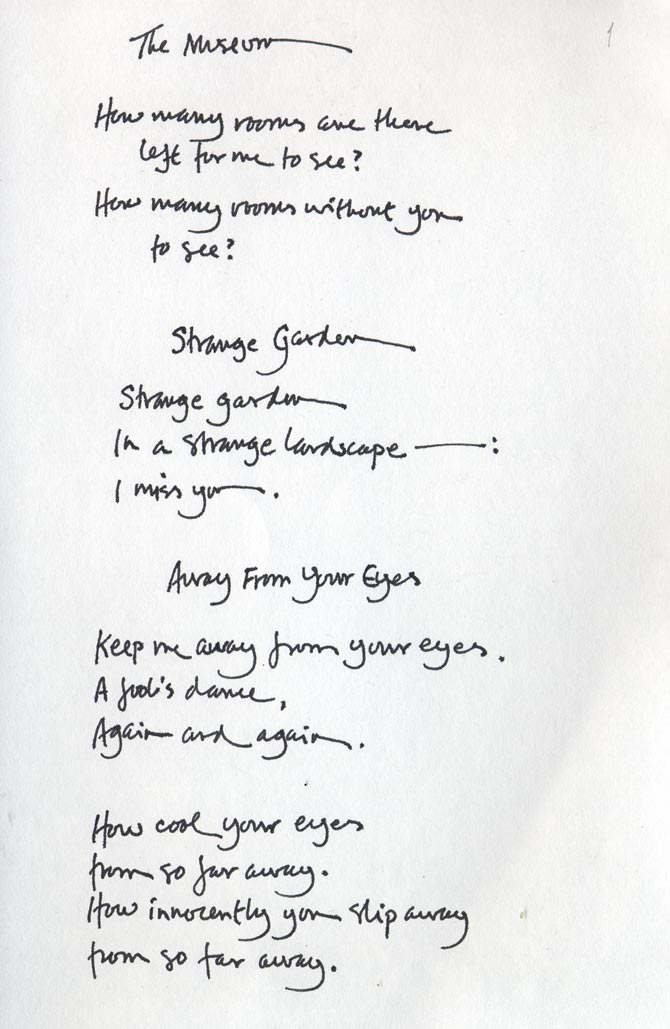 1
The Museum
How many rooms are there
left for me to see?
How many rooms without you
to see?
Strange Garden
Strange garden
In a strange landscape —:
I miss you.
Away From Your Eyes
Keep me away from your eyes.
A fool's dance,
Again and again.
How cool your eyes
from so far away.
How innocently you slip away
from so far away.